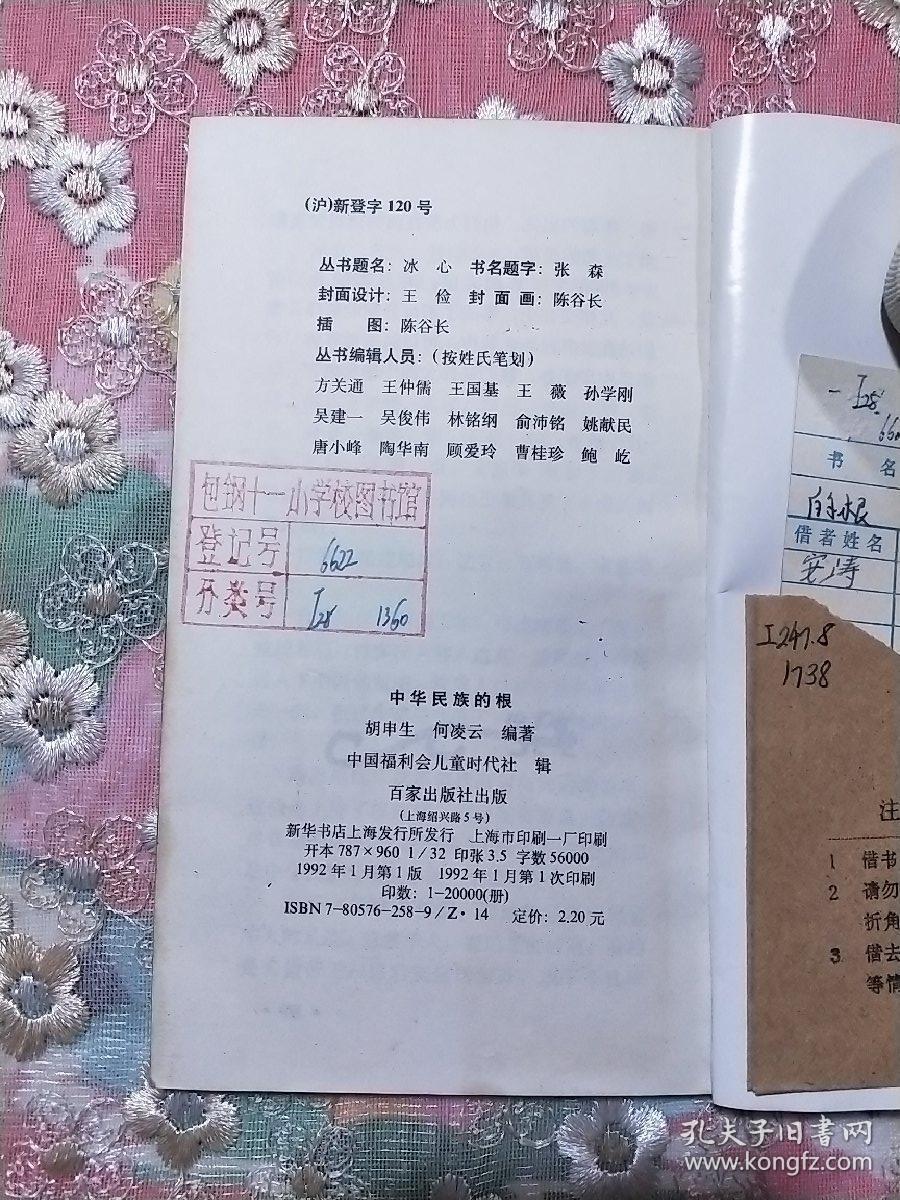 (沪)新登字120号
丛书题名：冰 心 书名题字：张 森
封面设计：王 俭 封 面 画：陈谷长
插 图：陈谷长
丛书编辑人员：(按姓氏笔划)
方关通 王仲儒 王国基 王 薇 孙学刚
吴建一 吴俊伟 林铭纲 俞沛铭 姚献民
唐小峰 陶华南 顾爱玲 曹桂珍 鲍 屹
包钢十一小学校图书馆
登记号 6622
分类号 I28 1360
中华民族的根
胡申生 何凌云 编著
中国福利会儿童时代社 辑
百家出版社出版
(上海绍兴路5号)
新华书店上海发行所发行 上海市印刷一厂印刷
开本787×960 1/32 印张3.5 字数56000
1992年1月第1版 1992年1月第1次印刷
印数：1-20000(册)
ISBN7-80576-258-9/Z·14 定价：2.20元
I28
书 名
借者姓名
I247.8
1738
注
1 借书
2 请勿
折角
3 借去
等情
孔夫子旧书网
www.kongfz.com